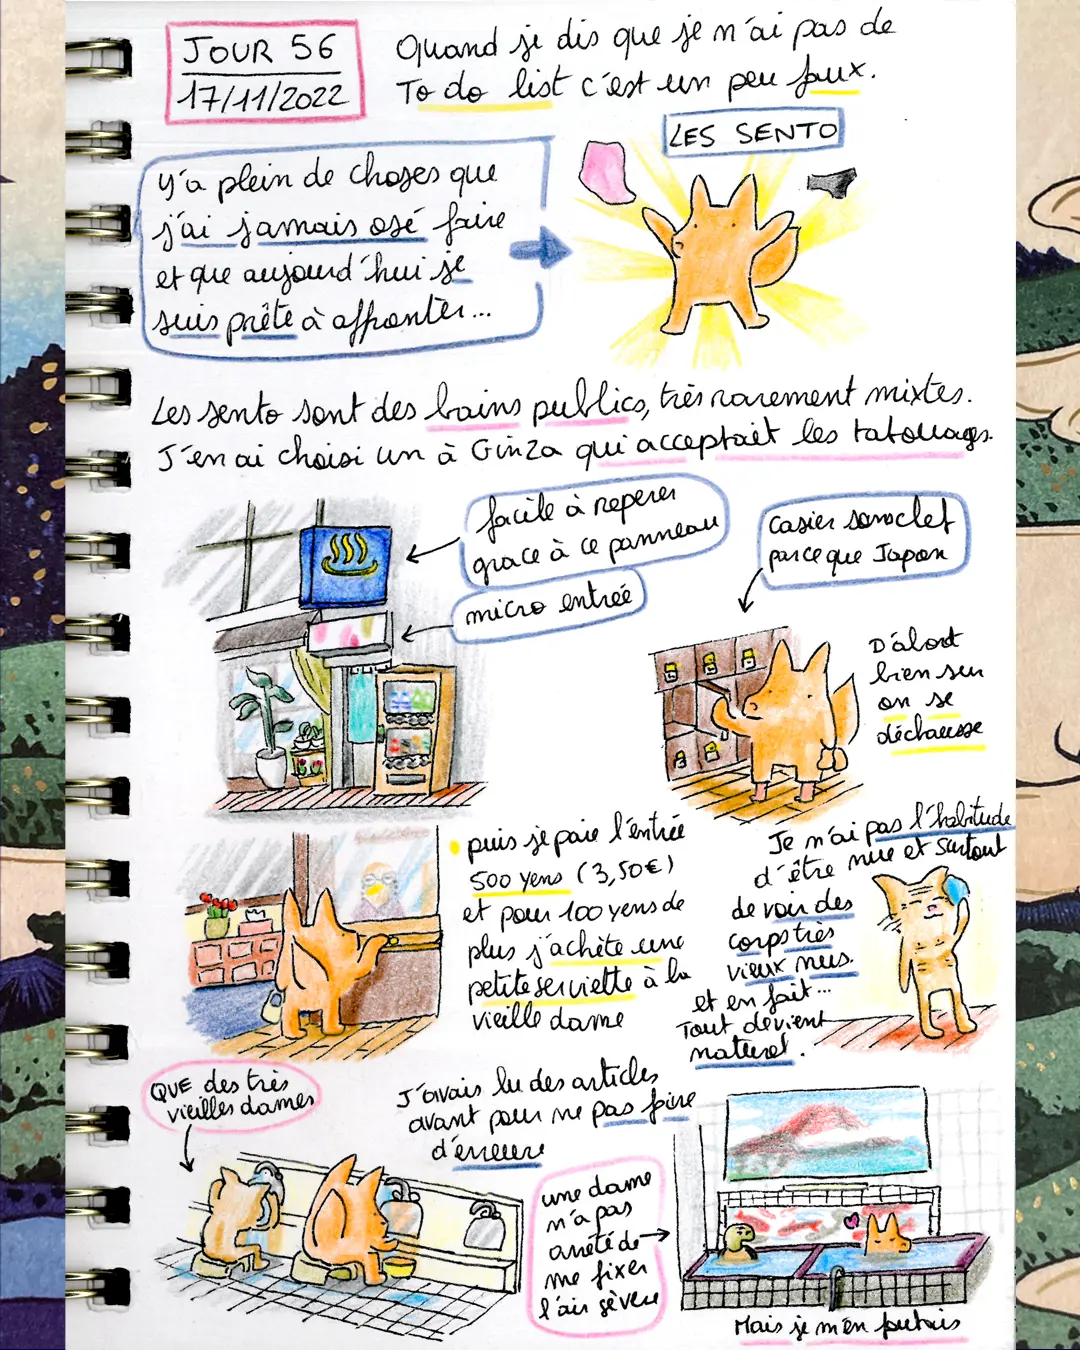 JOUR 56
17/11/2022
Quand je dis que je n'ai pas de
To do list c'est un peu faux.
LES SENTO
Y'a plein de choses que
j'ai jamais osé faire
et que aujourd'hui je
suis prête à affronter...
Les sento sont des bains publics, très rarement mixtes.
J'en ai choisi un à Ginza qui acceptait les tatouages.
facile à reperer
grace à ce panneau
micro entrée
casier sans clef
parce que Japon
D'abord
bien sur
on se
déchausse
puis je paie l'entrée
500 yens (3,50€)
et pour 100 yens de
plus j'achète une
petite serviette à la
vieille dame
Je n'ai pas l'habitude
d'être nue et surtout
de voir des
corps très
vieux nus.
et en fait...
Tout devient
naturel.
QUE des très
vieilles dames
J'avais lu des articles
avant pour ne pas faire
d'erreurs
une dame
n'a pas
arrêté de
me fixer
l'air sévère
Mais je m'en foutais